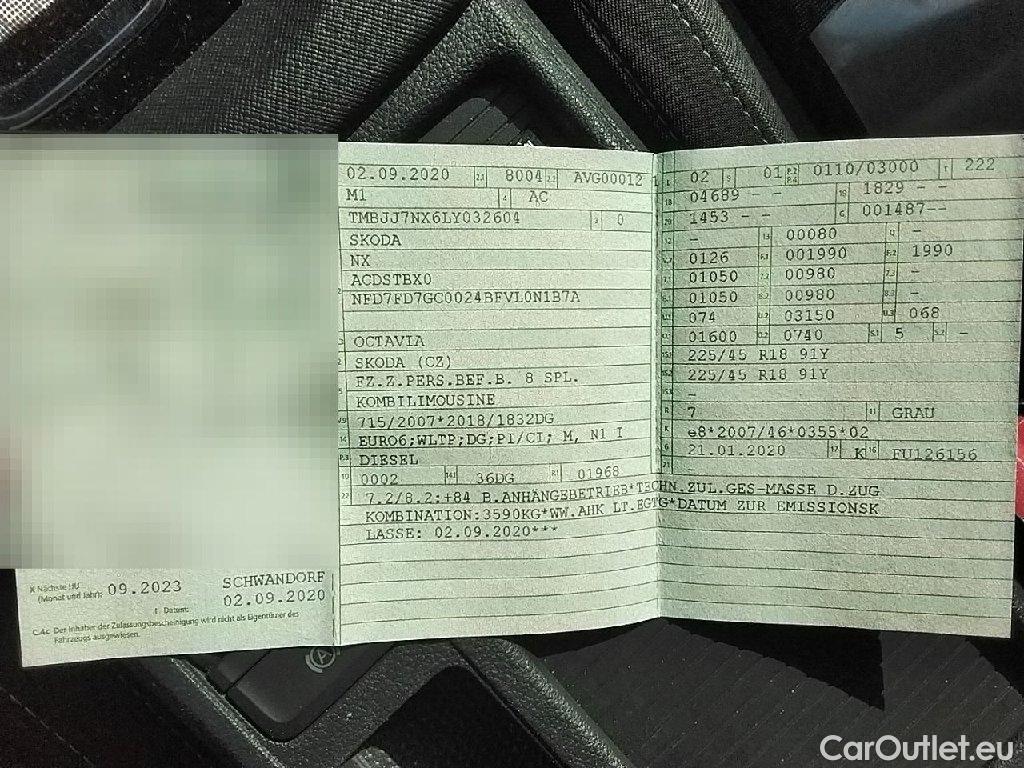 02.09.2020 8004 AVG00012
M1 AC
TMBJJ7NX6LY032604 0
SKODA
NX
ACDSTBX0
NFD7FD7GC0024BFVL0N1B7A
OCTAVIA
SKODA (CZ)
FZ.Z.PERS.BEF.B. 8 SPL.
KOMBILIMOUSINE
715/2007*2018/1832DG
EURO6;WLTP;DG;PI/CI; M, N1 I
DIESEL
0002 36DG 01968
02 01 0110/03000 222
04689 - - 1829 - -
1453 - - 001487--
- 00080 -
0126 001990 1990
01050 00980 -
01050 00980 -
074 03150 068
01600 0740 5 -
225/45 R18 91Y
225/45 R18 91Y
-
7 GRAU
e8*2007/46*0355*02
21.01.2020 K FU126156
7.2/8.2:+84 B.ANHÄNGEBETRIEB*TECHN.ZUL.GES-MASSE D.ZUG
KOMBINATION:3590KG*WW.AHK LT.EGTG*DATUM ZUR EMISSIONSK
LASSE: 02.09.2020***
Nächste HU
(Monat und Jahr): 09.2023 SCHWANDORF
I Datum: 02.09.2020
C.4c Der Inhaber der Zulassungsbescheinigung wird nicht als Eigentümer des
Fahrzeugs ausgewiesen.
CarOutlet.eu